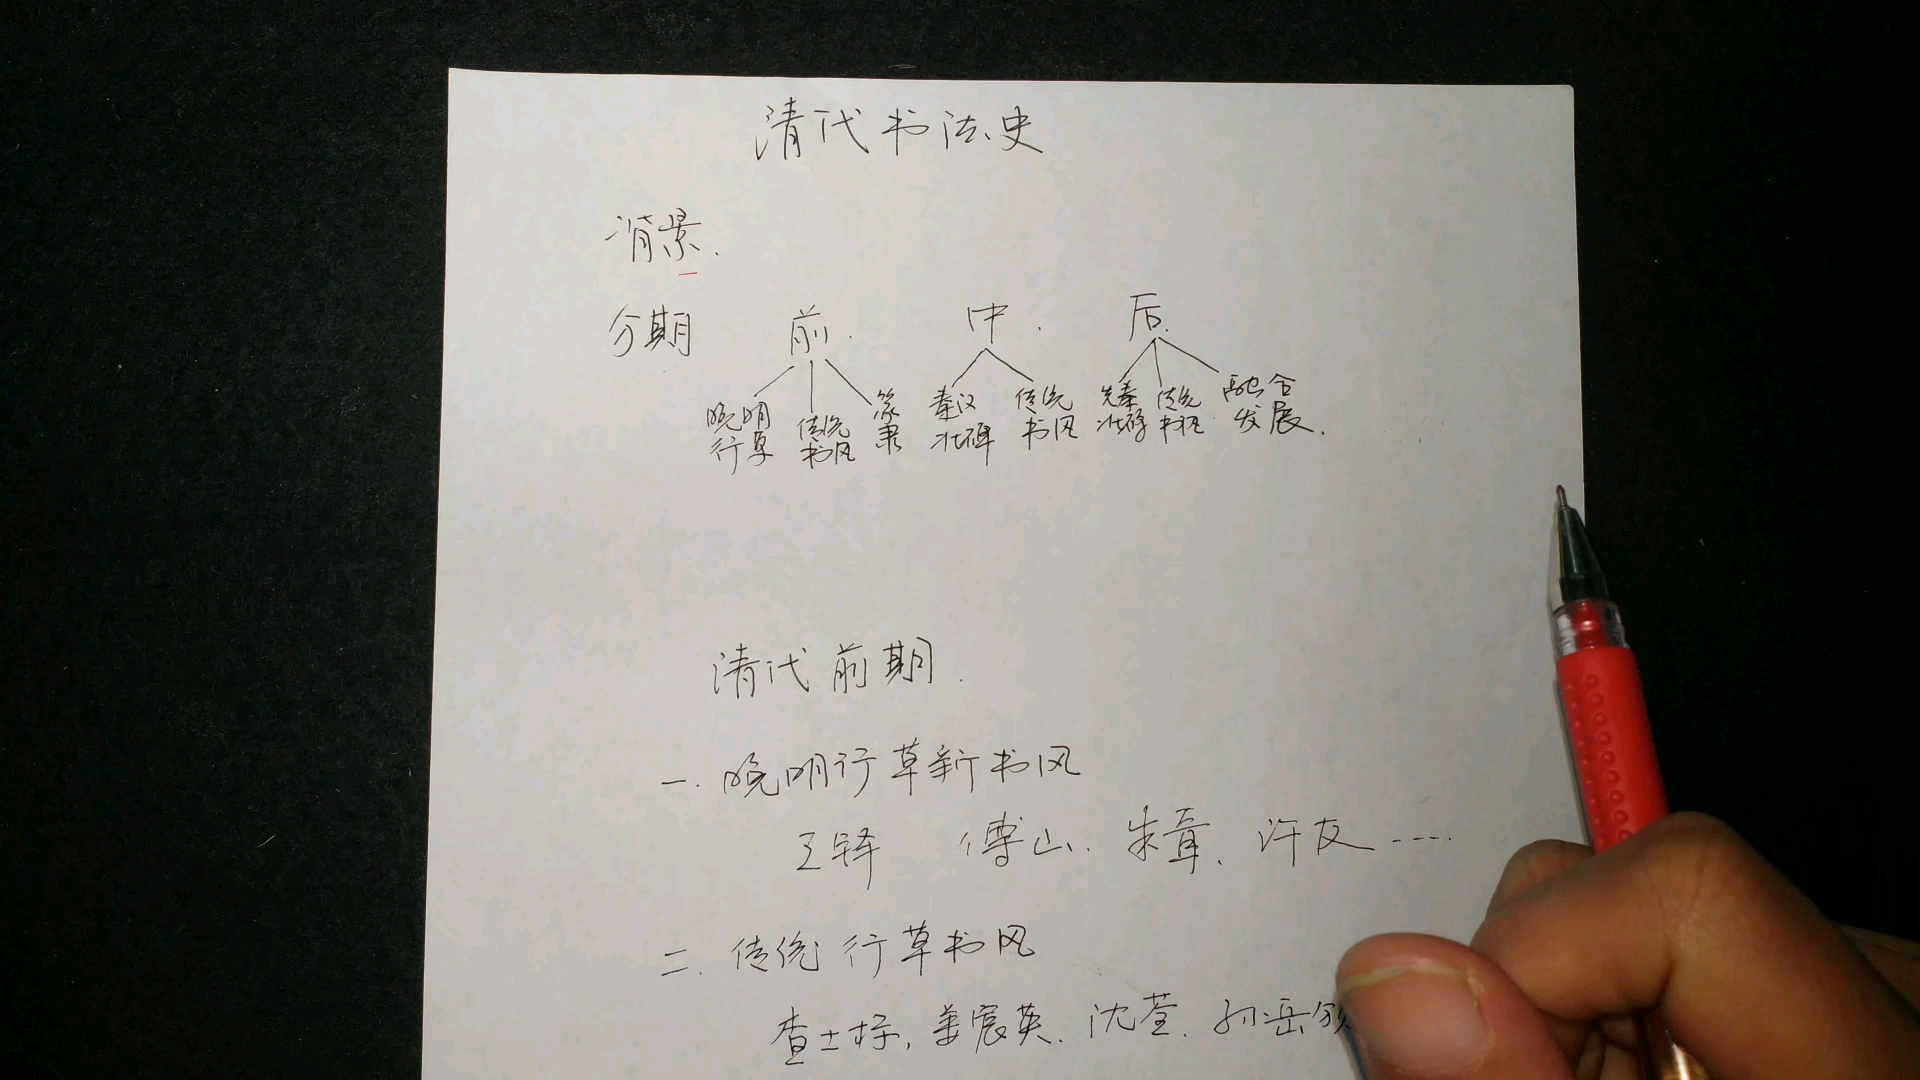 清代书法史
背景.
分期 前. 中. 后.
晚明行草 传统书风 篆隶 秦汉北碑 传统书风 先秦北碑 传统书风 融合发展.
清代前期.
一. 晚明行草新书风
王铎 傅山. 朱耷、许友----
二. 传统行草书风
查士标, 姜宸英. 沈荃. 孙岳颁